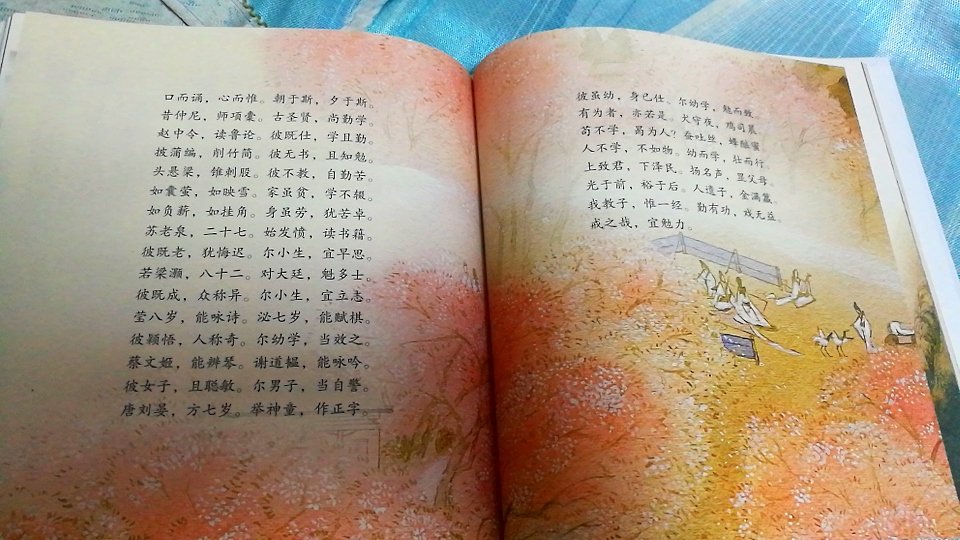 口而诵，心而惟。朝于斯，夕于斯。
昔仲尼，师项橐。古圣贤，尚勤学。
赵中令，读鲁论。彼既仕，学且勤。
披蒲编，削竹简。彼无书，且知勉。
头悬梁，锥刺股。彼不教，自勤苦。
如囊萤，如映雪。家虽贫，学不辍。
如负薪，如挂角。身虽劳，犹苦卓。
苏老泉，二十七。始发愤，读书籍。
彼既老，犹悔迟。尔小生，宜早思。
若梁灏，八十二。对大廷，魁多士。
彼既成，众称异。尔小生，宜立志。
莹八岁，能咏诗。泌七岁，能赋棋。
彼颖悟，人称奇。尔幼学，当效之。
蔡文姬，能辨琴。谢道韫，能咏吟。
彼女子，且聪敏。尔男子，当自警。
唐刘晏，方七岁。举神童，作正字。
彼虽幼，身已仕。尔幼学，勉而致。
有为者，亦若是。犬守夜，鸡司晨。
苟不学，曷为人？蚕吐丝，蜂酿蜜。
人不学，不如物。幼而学，壮而行。
上致君，下泽民。扬名声，显父母。
光于前，裕于后。人遗子，金满籝。
我教子，惟一经。勤有功，戏无益。
戒之哉，宜勉力。